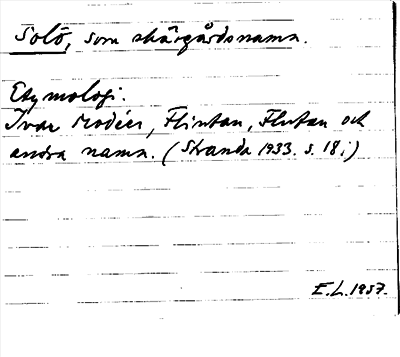 Solö, som skärgårdsnamn.
Etymologi.
Ivar Modéer, Flintan, Flutan och
andra namn. (Stranda 1933. s. 18;)
E.L. 1957.